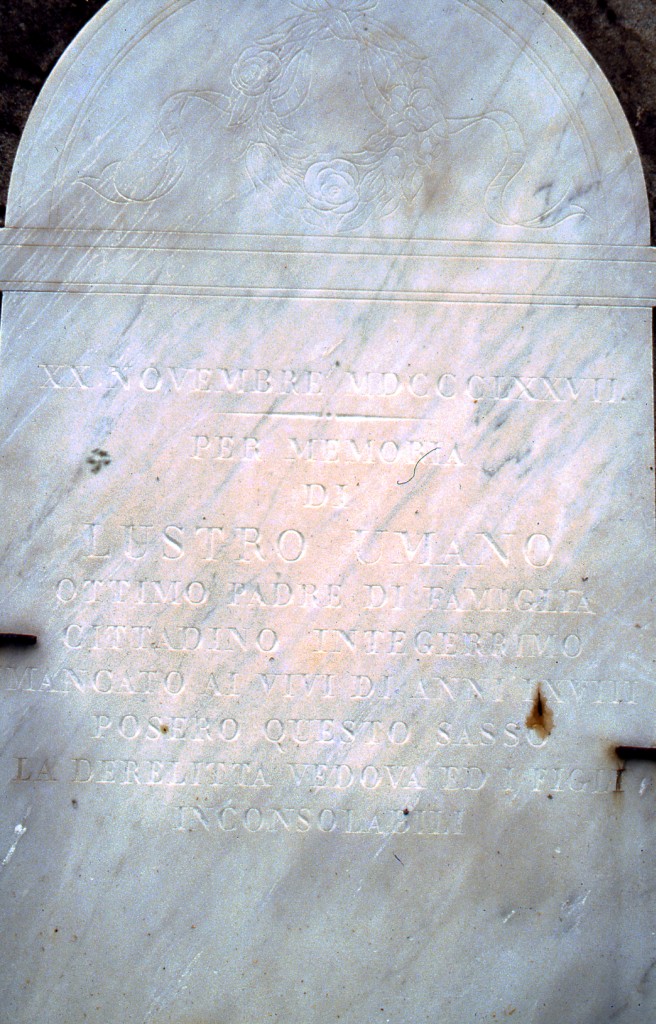 XX NOVEMBRE MDCCCCLXXVII
PER MEMORIA
DI
LUSTRO UMANO
OTTIMO PADRE DI FAMIGLIA
CITTADINO INTEGERRIMO
MANCATO AI VIVI DI ANNI LXVIII
POSERO QUESTO SASSO
LA DERELITTA VEDOVA ED I FIGLI
INCONSOLABILI